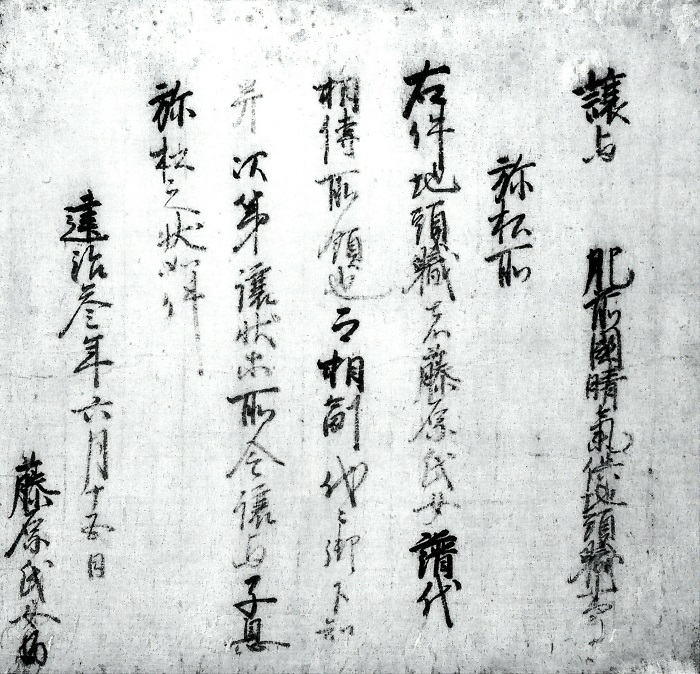 譲与 肥前國晴氣保地頭職事
弥松所
右件地頭職者藤原氏女譜代
相傳所領也而相副代々御下知
并次第譲状等所令譲与子息
弥松之状如件
建治参年六月十五日
藤原氏女